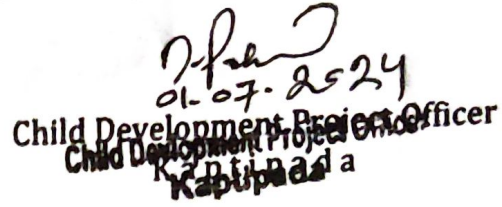 01-07-2024
Child Development Project Officer
Child Development Project Officer
Kaptipada
Kaptipada